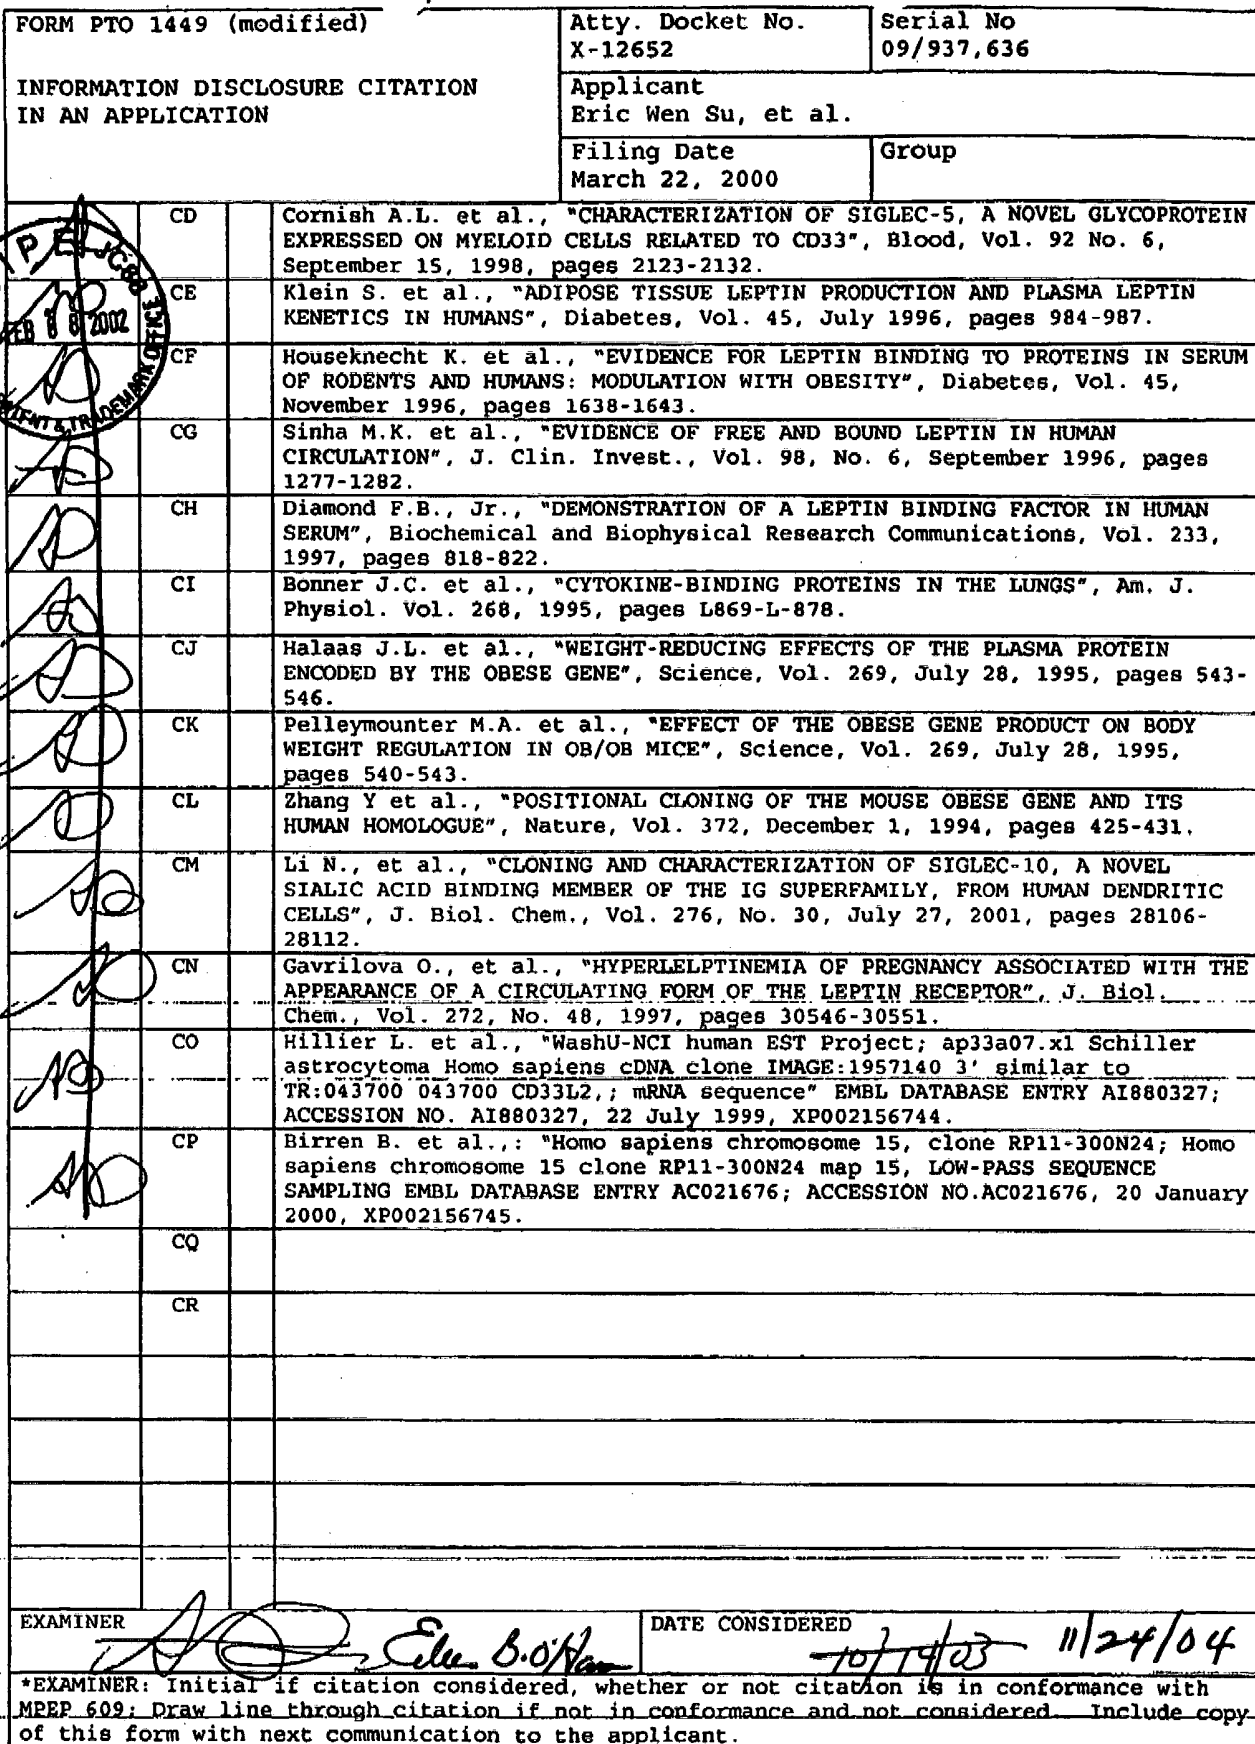 FORM PTO 1449 (modified)
INFORMATION DISCLOSURE CITATION
IN AN APPLICATION
Atty. Docket No.
X-12652
Serial No
09/937,636
Applicant
Eric Wen Su, et al.
Filing Date
March 22, 2000
Group
CD
Cornish A.L. et al., "CHARACTERIZATION OF SIGLEC-5, A NOVEL GLYCOPROTEIN
EXPRESSED ON MYELOID CELLS RELATED TO CD33", Blood, Vol. 92 No. 6,
September 15, 1998, pages 2123-2132.
FEB 2002
CE
Klein S. et al., "ADIPOSE TISSUE LEPTIN PRODUCTION AND PLASMA LEPTIN
KENETICS IN HUMANS", Diabetes, Vol. 45, July 1996, pages 984-987.
CF
Houseknecht K. et al., "EVIDENCE FOR LEPTIN BINDING TO PROTEINS IN SERUM
OF RODENTS AND HUMANS: MODULATION WITH OBESITY", Diabetes, Vol. 45,
November 1996, pages 1638-1643.
CG
Sinha M.K. et al., "EVIDENCE OF FREE AND BOUND LEPTIN IN HUMAN
CIRCULATION", J. Clin. Invest., Vol. 98, No. 6, September 1996, pages
1277-1282.
CH
Diamond F.B., Jr., "DEMONSTRATION OF A LEPTIN BINDING FACTOR IN HUMAN
SERUM", Biochemical and Biophysical Research Communications, Vol. 233,
1997, pages 818-822.
CI
Bonner J.C. et al., "CYTOKINE-BINDING PROTEINS IN THE LUNGS", Am. J.
Physiol. Vol. 268, 1995, pages L869-L-878.
CJ
Halaas J.L. et al., "WEIGHT-REDUCING EFFECTS OF THE PLASMA PROTEIN
ENCODED BY THE OBESE GENE", Science, Vol. 269, July 28, 1995, pages 543-
546.
CK
Pelleymounter M.A. et al., "EFFECT OF THE OBESE GENE PRODUCT ON BODY
WEIGHT REGULATION IN OB/OB MICE", Science, Vol. 269, July 28, 1995,
pages 540-543.
CL
Zhang Y et al., "POSITIONAL CLONING OF THE MOUSE OBESE GENE AND ITS
HUMAN HOMOLOGUE", Nature, Vol. 372, December 1, 1994, pages 425-431.
CM
Li N., et al., "CLONING AND CHARACTERIZATION OF SIGLEC-10, A NOVEL
SIALIC ACID BINDING MEMBER OF THE IG SUPERFAMILY, FROM HUMAN DENDRITIC
CELLS", J. Biol. Chem., Vol. 276, No. 30, July 27, 2001, pages 28106-
28112.
CN
Gavrilova O., et al., "HYPERLELPTINEMIA OF PREGNANCY ASSOCIATED WITH THE
APPEARANCE OF A CIRCULATING FORM OF THE LEPTIN RECEPTOR", J. Biol.
Chem., Vol. 272, No. 48, 1997, pages 30546-30551.
CO
Hillier L. et al., "WashU-NCI human EST Project; ap33a07.x1 Schiller
astrocytoma Homo sapiens cDNA clone IMAGE:1957140 3' similar to
TR:043700 043700 CD33L2,; mRNA sequence" EMBL DATABASE ENTRY AI880327;
ACCESSION NO. AI880327, 22 July 1999, XP002156744.
CP
Birren B. et al.,: "Homo sapiens chromosome 15, clone RP11-300N24; Homo
sapiens chromosome 15 clone RP11-300N24 map 15, LOW-PASS SEQUENCE
SAMPLING EMBL DATABASE ENTRY AC021676; ACCESSION NO.AC021676, 20 January
2000, XP002156745.
CQ
CR
EXAMINER
DATE CONSIDERED
10/14/03 11/24/04
*EXAMINER: Initial if citation considered, whether or not citation is in conformance with
MPEP 609; Draw line through citation if not in conformance and not considered. Include copy
of this form with next communication to the applicant.